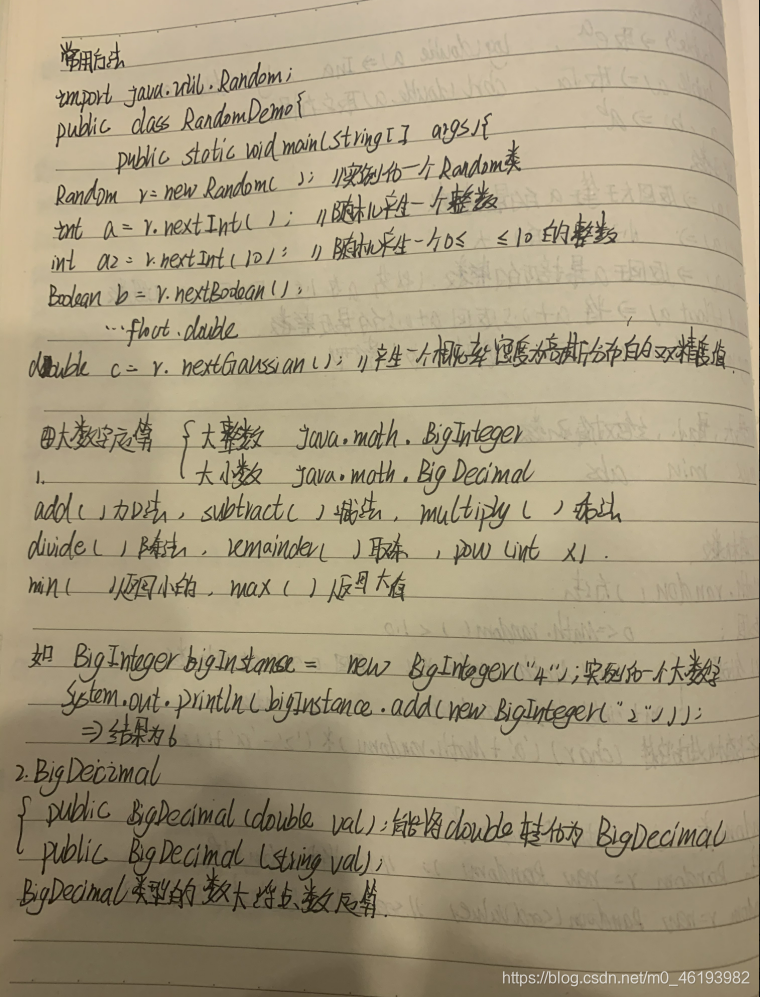 常用方法
import java.util.Random;
public class RandomDemo{
public static void main(String[] args){
Random r=new Random( ); //实例化一个Random类
int a=r.nextInt( ); //随机产生一个整数
int a2=r.nextInt(10); //随机产生一个0≤ ≤10的整数
Boolean b=r.nextBoolean();
…float.double
double c=r.nextGaussian(); //产生一个概率密度为高斯分布的双精度值.
大数字运算 { 大整数 java.math.BigInteger
1. 大小数 java.math.BigDecimal
add( )加法, subtract( )减法, multiply( )乘法
divide( )除法, remainder( )取余, pow(int x).
min( )返回小的, max( )返回大值
如 BigInteger bigInstanse = new BigInteger("4");实例化一个大数字
System.out.println(bigInstance.add(new BigInteger("2")));
⇒结果为6
2.BigDecimal
{ public BigDecimal(double val);能将double转化为BigDecimal
public BigDecimal(string val);
BigDecimal类型的数大浮点数运算.
https://blog.csdn.net/m0_46193982